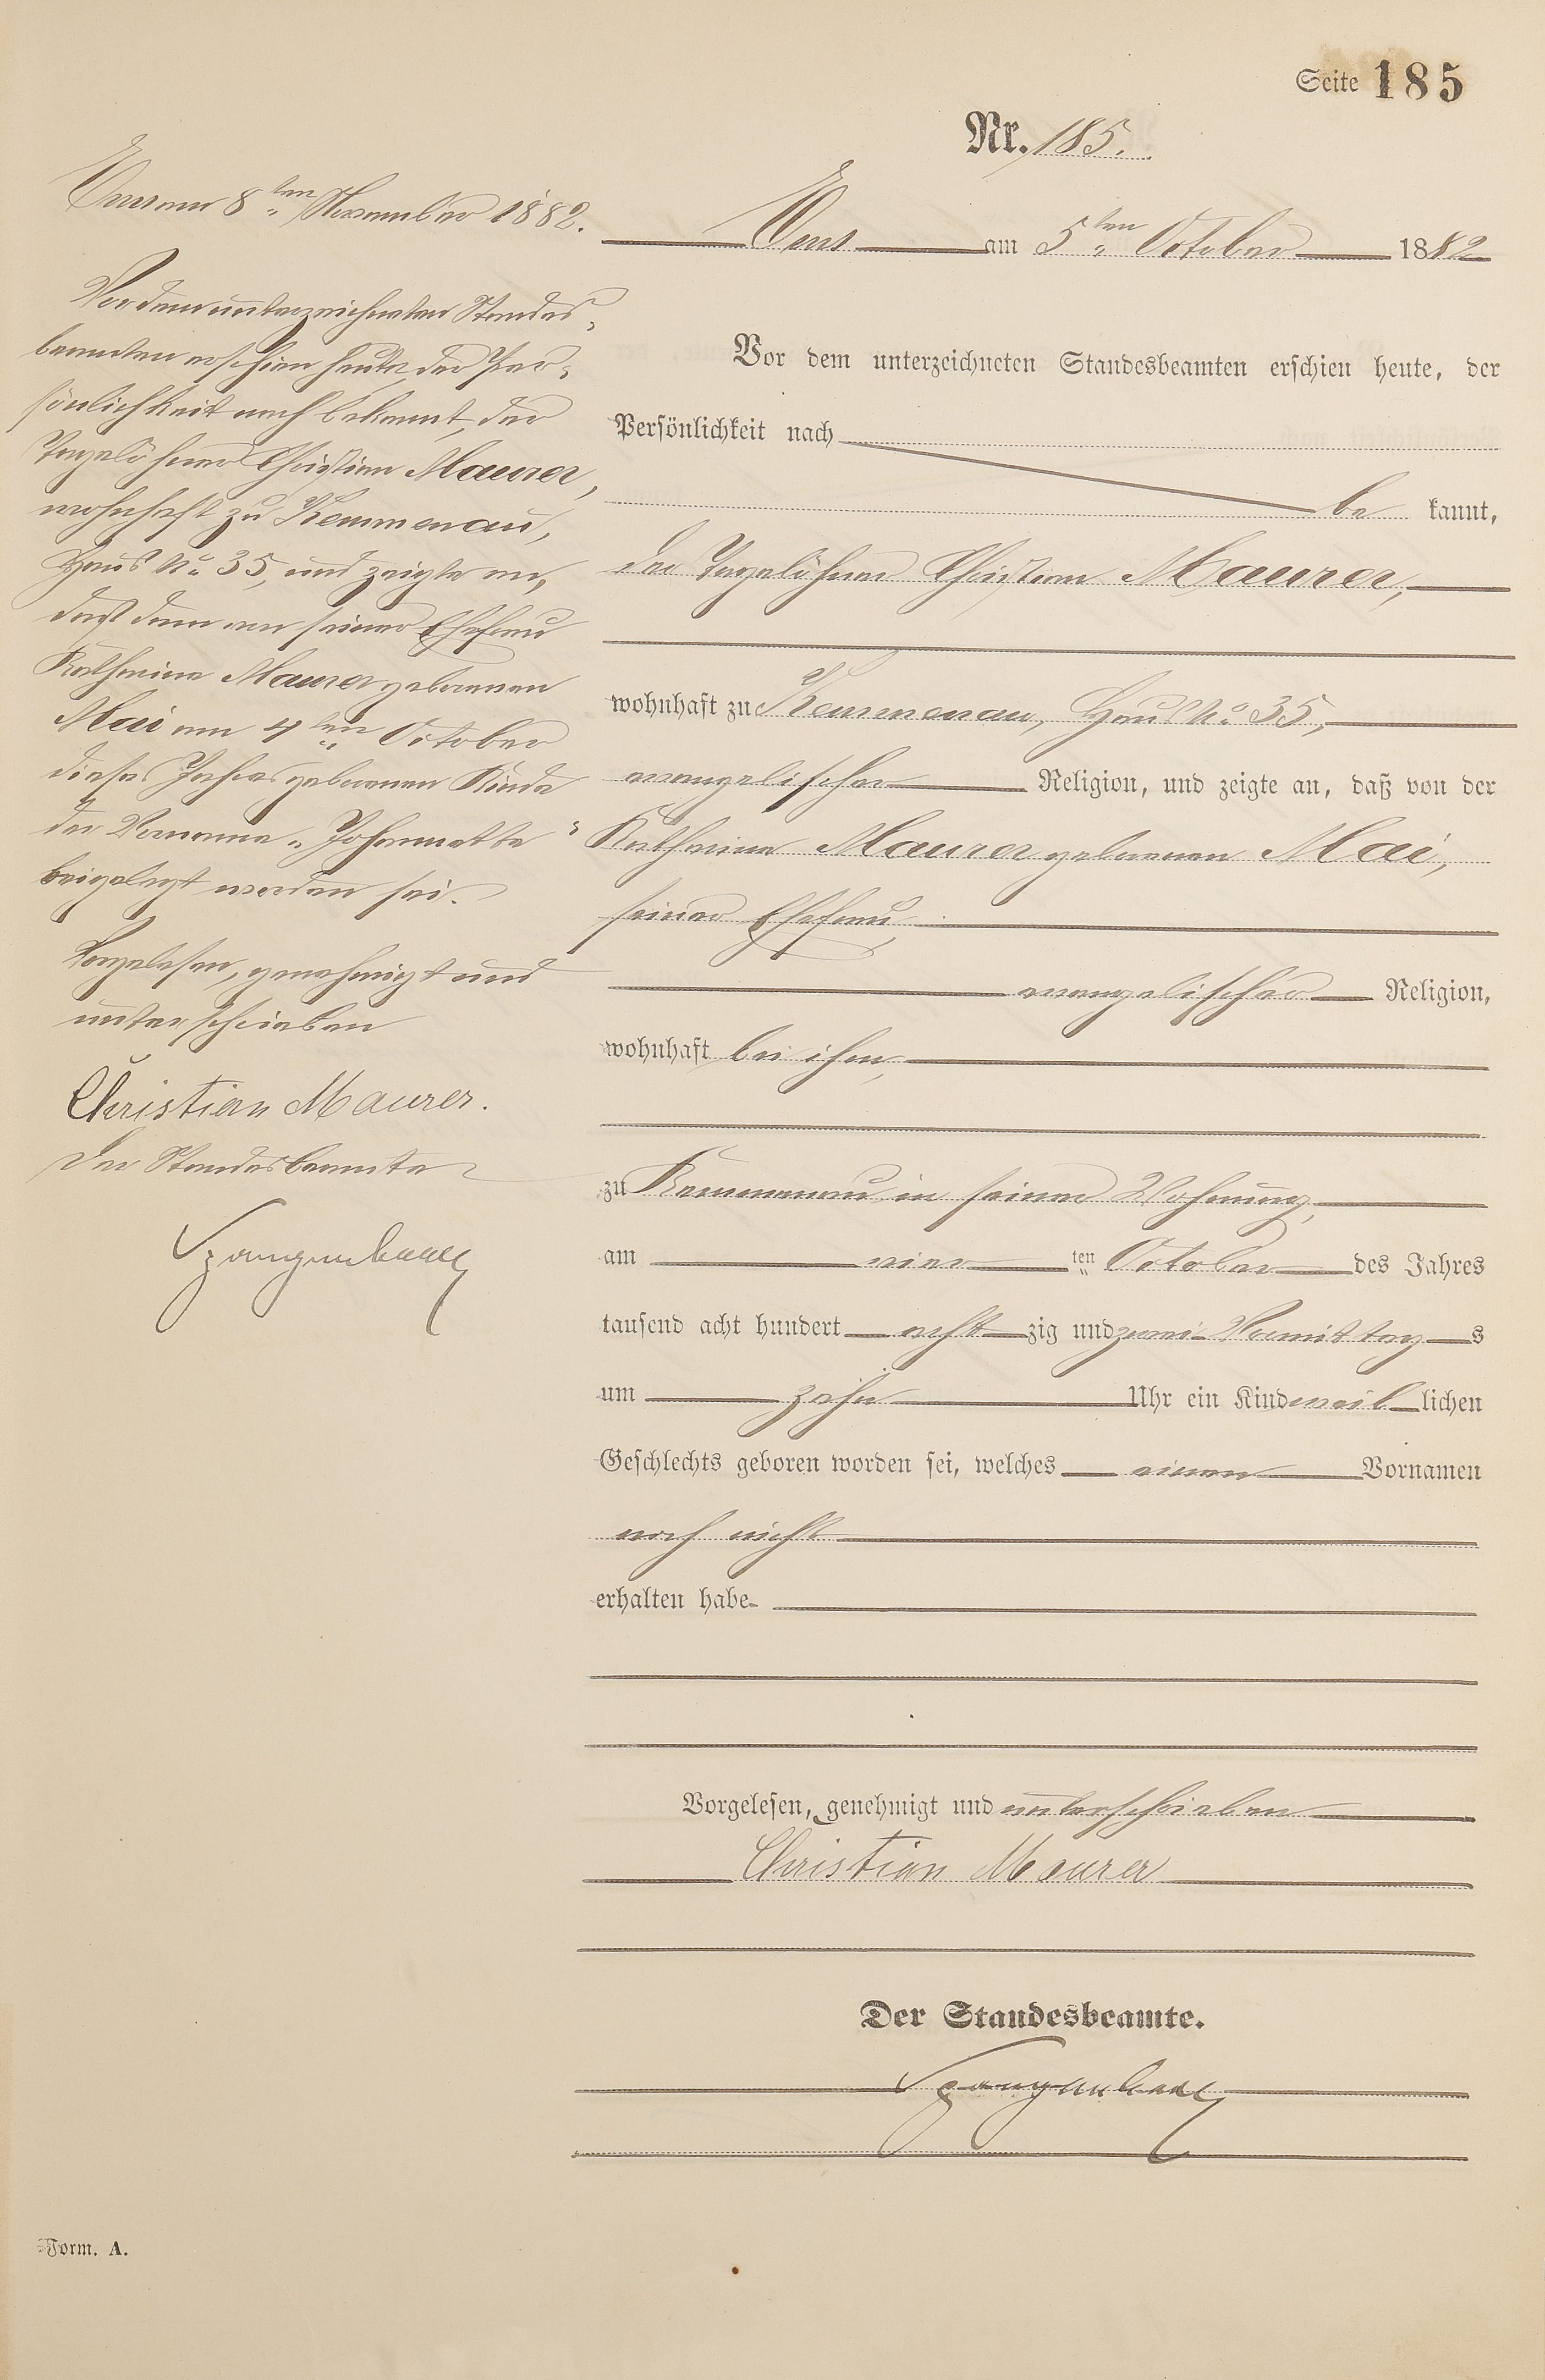 Seite 185
Nr. 185.
Ems am 5ten October 1882
Vor dem unterzeichneten Standesbeamten erschien heute, der
Persönlichkeit nach
be kannt,
der Tagelöhner Christian Maurer,
wohnhaft zu Kemmenau, Haus No 35,
evangelischer Religion, und zeigte an, daß von der
Katharina Maurer geborenen Mai,
seiner Ehefrau,
evangelischer Religion,
wohnhaft bei ihm,
zu Kemmenau in seiner Wohnung,
am vier ten October des Jahres
tausend acht hundert acht zig und zwei Vormittag s
um zehn Uhr ein Kind weib lichen
Geschlechts geboren worden sei, welches einen Vornamen
noch nicht
erhalten habe
Vorgelesen, genehmigt und unterschrieben
Christian Maurer
Der Standesbeamte.
Spangenberg
Ems am 8ten November 1882.
Vor dem unterzeichneten Standes-
beamten erschien heute, der Per-
sönlichkeit nach bekannt, der
Tagelöhner Christian Maurer,
wohnhaft zu Kemmenau,
Haus No 35, und zeigte an,
daß dem von seiner Ehefrau
Katharina Maurer geborenen
Mai am 4ten October
dieses Jahres geborenen Kinde
der Vorname „Johannette"
beigelegt worden sei.
Vorgelesen, genehmigt und
unterschrieben
Christian Maurer.
Der Standesbeamte
Form. A.